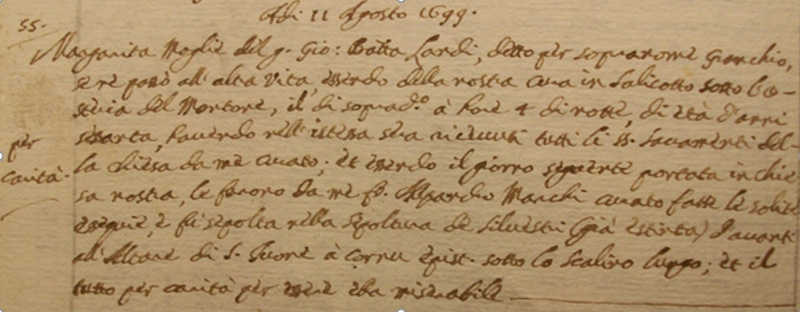 Adi 11 Agosto 1699.
55. Margarita Moglie del q. Gio: Batta Landi, detto per sopranome Gianchio,
se ne passò all'alta vita, essendo della nostra cura in Salicotto sotto l'o-
steria del Montone, il di soprad.o à hore 4 di notte, di età d'anni
sessanta, havendo nell'istessa sera ricevuti tutti li SS. Sacramenti del-
per la Chiesa da me curato; et essendo il giorno seguente portata in chie-
carità. sa nostra, le furono da me fr. Curato fatte le solite
esequie, e fù sepolta nella sepoltura de Silvestri (già estinta) d'avanti
all'Altare di S. Ivone à cornu Epist. sotto lo scalino lungo; et il
tutto per carità per essere era miserabile